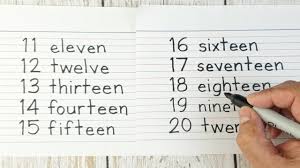 11 eleven
12 twelve
13 thirteen
14 fourteen
15 fifteen
16 sixteen
17 seventeen
18 eighteen
19 ninet
20 twen